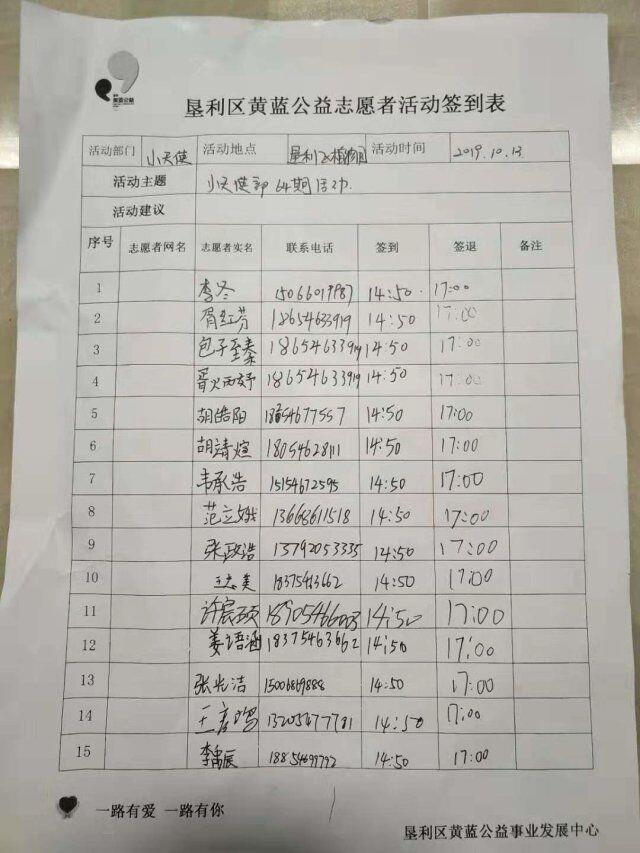 黄蓝公益
垦利区黄蓝公益志愿者活动签到表
活动部门 小天使 活动地点 垦利 活动时间 2019.10.13
活动主题 小天使部64期活动.
活动建议
序号 志愿者网名 志愿者实名 联系电话 签到 签退 备注
1 李冬 14:50 17:00
2 胥红芬 18654633919 14:50 17:00
3 包子至秦 18654633919 14:50 17:00
4 18654633919 14:50 17:00
5 胡皓阳 14:50 17:00
6 胡靖煊 18054628111 14:50 17:00
7 韦承浩 15154672595 14:50 17:00
8 范立娥 13668611518 14:50 17:00
9 张政浩 13792053335 14:50 17:00
10 王志美 18375463662 14:50 17:00
11 许宸硕 18905466003 14:50 17:00
12 姜语涵 18375463662 14:50 17:00
13 张光洁 14:50 17:00
14 13205477781 14:50 17:00
15 李禹辰 18854699792 14:50 17:00
一路有爱 一路有你
垦利区黄蓝公益事业发展中心